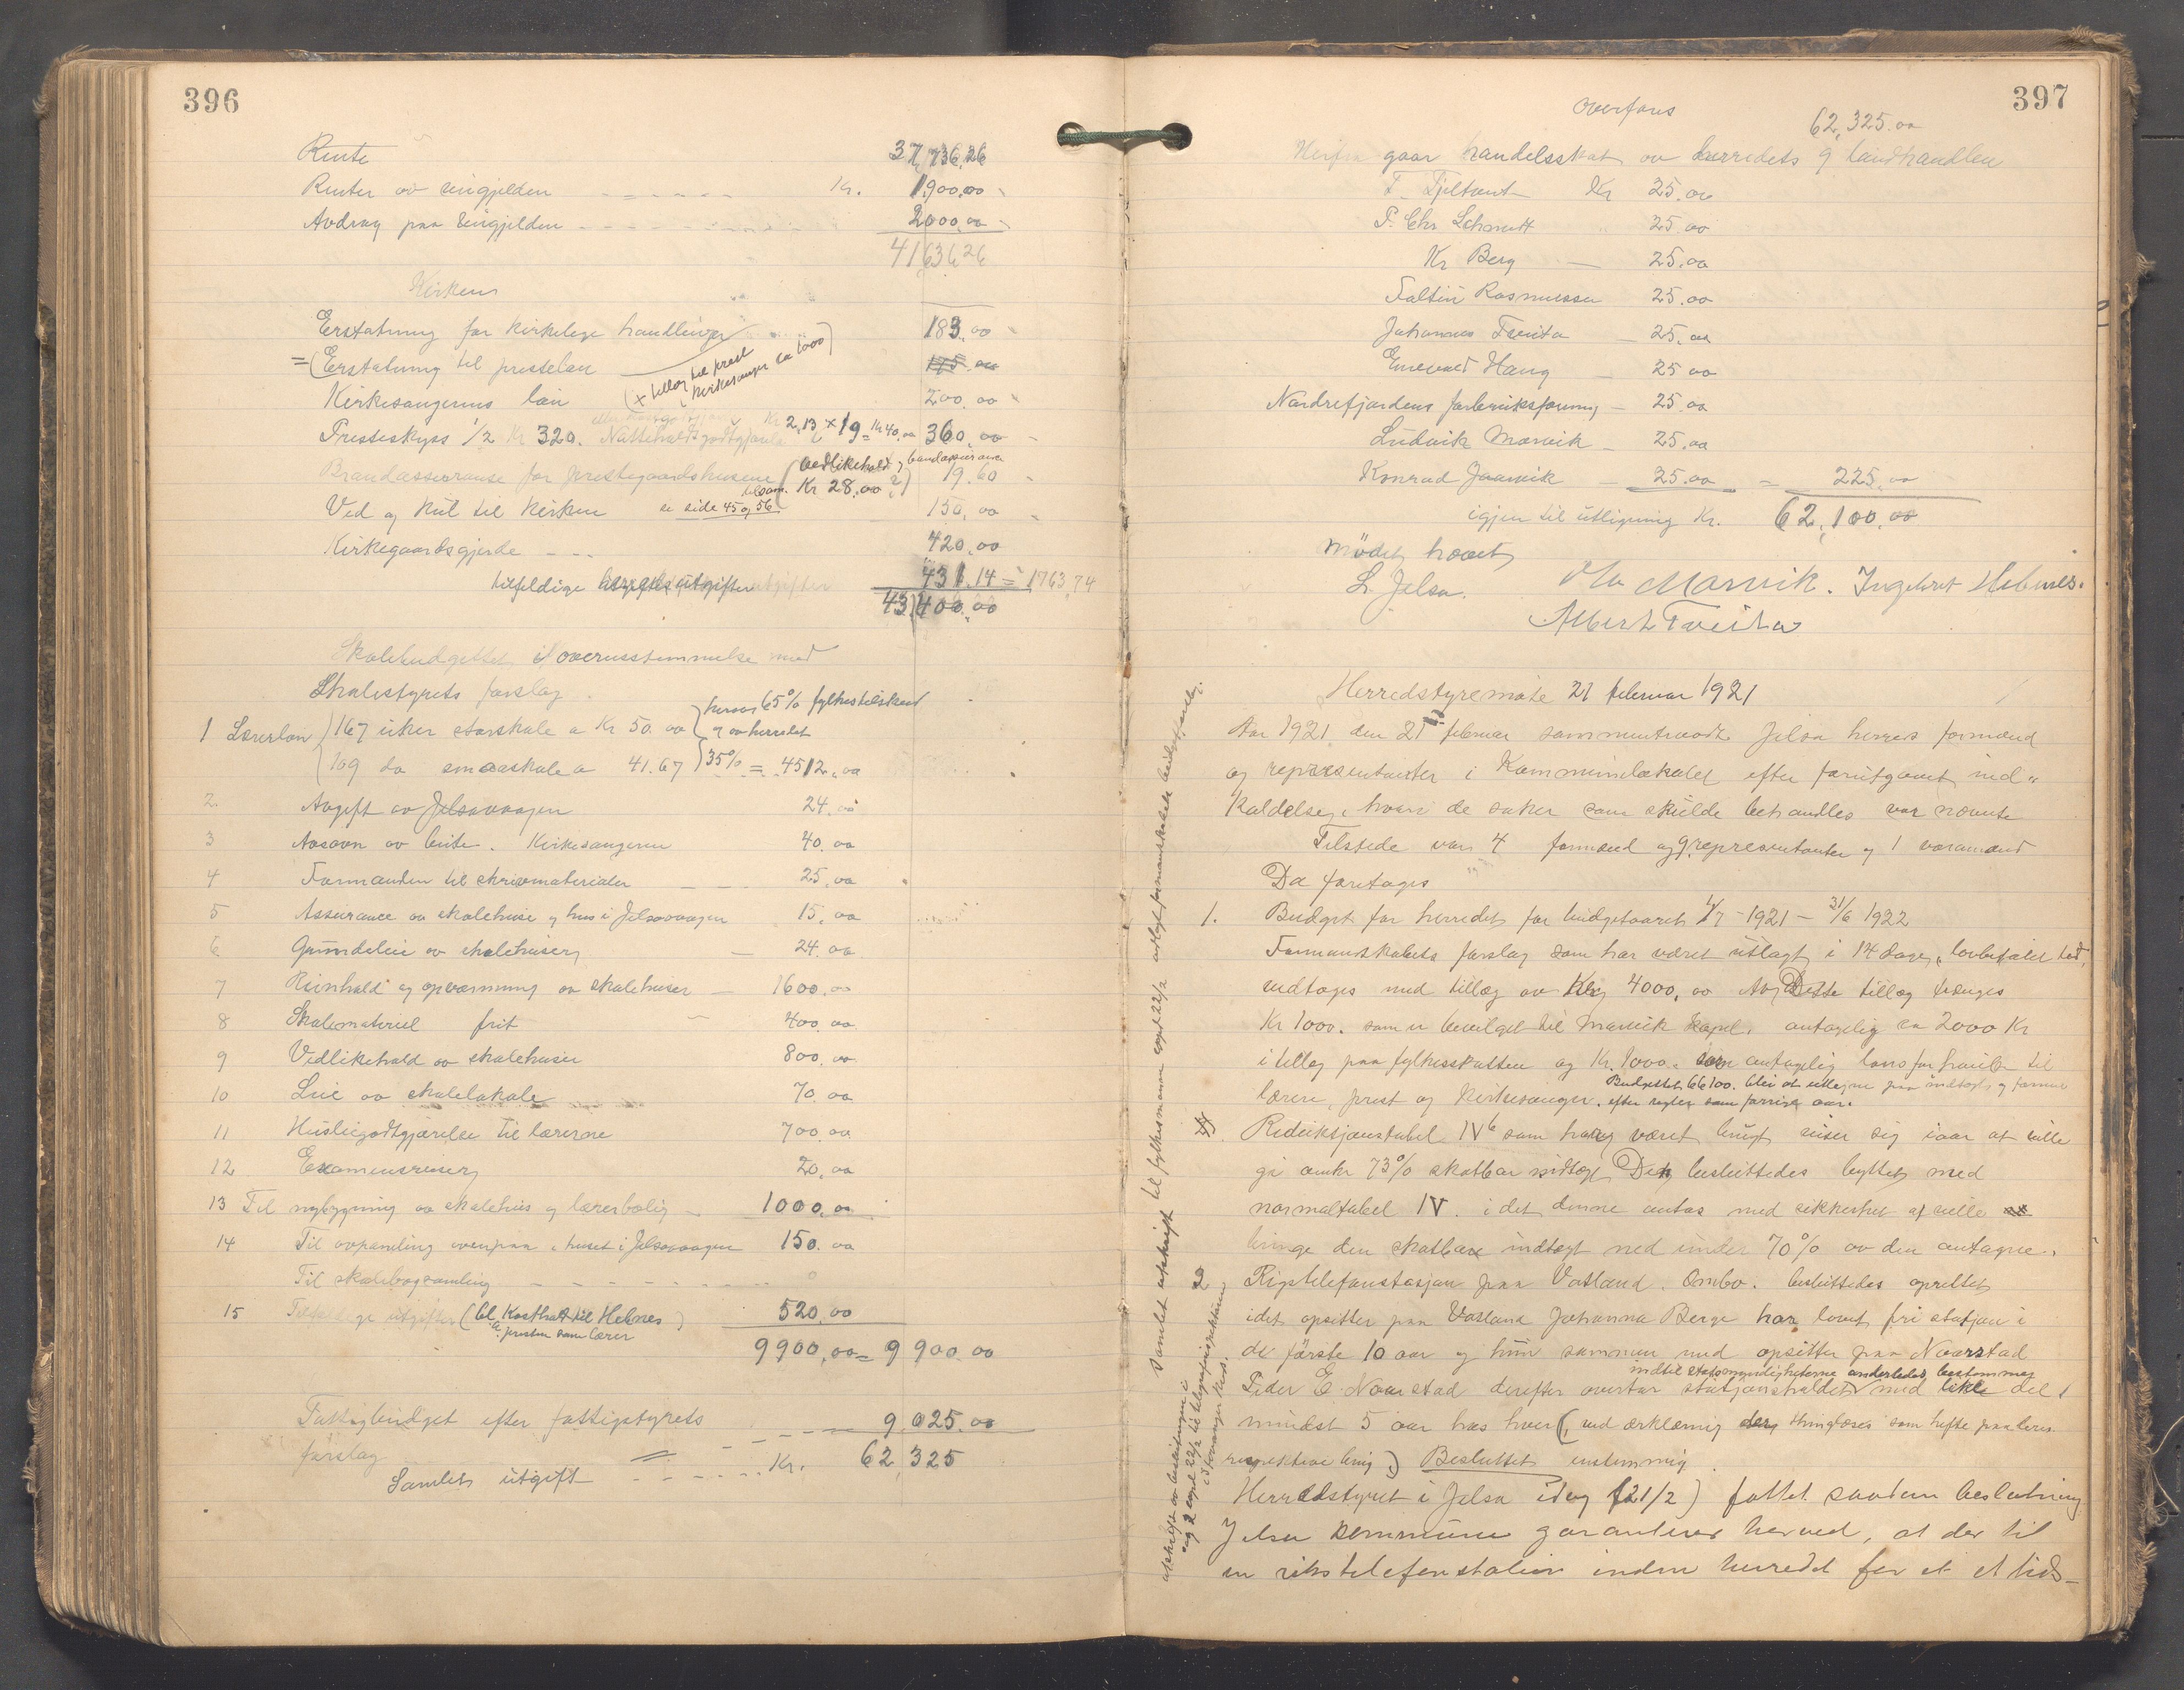 396
Rente 37,736,26
Renter av uingjelden Kr. 1900,00
Avdrag paa uingjelden 2000,00
41636 26
Kirken
Erstatning for kirkelige handlinger 183,00
= (Erstatning til presteløn 175,00
(+ tillæg til prest
i kirkesanger ca 1000)
Kirkesangerens løn 200,00
Presteskyss 1/2 Kr 320. Nattiholdsgodtgjørelse Kr 2,13 x 19 = Kr 40,00 360,00
Brandassuranse for prestegaardshusene (vedlikehold og brandassuranse 19,60
tilsam. Kr 28,00?)
Ved og kul til kirken se side 45 og 56 150,00
Kirkegaardsgjerde 420,00
tilfeldige utgifter 431.14 = 1763,74
43,400,00
Skolebudgettet i overensstemmelse med
Skolestyrets forslag.
1 Lærerløn 167 uker storskole a Kr 50.00 hvorav 65% fylkestilskud
og av herredet
109 do smaaskole a 41.67 35% = 4512,00
2. Avgift av Jelsavaagen 24,00
3 Aasavn av beite. Kirkesangeren 40.00
4 Formanden til skrivmaterialer 25,00
5 Assurance av skolehuse og hus i Jelsavaagen 15,00
6 Grundleie av skolehuser 24.00
7 Reinhold og opvarmning av skolehuser 1600,00
8 Skolemateriel frit 400,00
9 Vedlikehold av skolehuser 800,00
10 Leie av skolelokale 70.00
11 Husleiegodtgjørelse til lærerne 700,00
12 Examensreiser 20,00
13 Til nybygning av skolehus og lærerbolig 1000,00
14 Til avpanling ovenpaa i huset i Jelsavaagen 150.00
Til skolebogsamling
15 Tilfeldige utgifter (bl.a. Kosthold til Hebnes)
presten som lærer 520,00
9900,00 = 9 900.00
Fattigbudget efter fattigstyrets 9,025.00
forslag
Samlet utgift Kr. 62,325
397
Overføres 62,325.00
Herfra gaar handelsskat av herredets 9 landhandlere
T. Tjeltveit Kr 25.00
P. Chr Schmitt 25.00
Kr Berg 25.00
Faltin Rasmussen 25.00
Johannes Tveita 25.00
Enevald Haug 25 00
Nordrefjordens forbruksforening 25.00
Ludvik Marvik 25.00
Konrad Jaarvik 25.00 = 225,00
igjen til utligning Kr. 62,100,00
Mødet hævet
L. Jelsa. Ola Marvik. Ingebret Hebnes.
Albert Tveita
Herredstyremøte 21 februar 1921
Aar 1921 den 21 februar sammentraadte Jelsa herreds formænd
og repræsentanter i Kommunelokalet efter forutgaaet ind-
kaldelse, hvori de saker som skulde behandles var nævnte
Tilstede var 4 formænd og 9 repræsentanter og 1 varamand
Da foretages
1. Budget for herredet for budgetaaret 1/7 - 1921 - 31/6 1922
Formanskabets forslag som har været utlagt i 14 dage, lovbefalet tid,
vedtages med tillæg av Kr 4000,00 Av Dette tillæg trænges
Kr 1000. som er bevilget til Marvik kapel. antagelig ca 2000 Kr
i tillæg paa fylkesskatten og Kr. 1000. som antagelig lønsforhøielse til
lærere, prest og kirkesanger. Budgettet 66100. blir at utligne paa indtægt og formue
efter regler som forrige aar.
Reduksjonstabel IVb som har været brugt viser sig iaar at ville
gi omkr 73% skatbar indtægt. Den besluttedes byttet med
normaltabel IV. i det denne antas med sikkerhet at ville
bringe den skatbare indtægt ned under 70% av den antagne.
2 Rigstelefonstasjon paa Vatland. Ombo. besluttedes oprettet
idet opsitter paa Vatland Johanna Berge har lovet fri stasjon i
de første 10 aar og hun sammen med opsitter paa Naarstad
Peder E. Naarstad derefter overtar stasjonsholdet indtil statsmyndigheterne anderledes bestemmer med like del
mindst 5 aar hos hver (, ved erklæring som hefte paa deres
respektive brug) Besluttet enstemmig.
Herredstyret i Jelsa idag (21/2) fattet saadan beslutning
Jelsa kommune garanterer herved, at der til
en rikstelefonstation inden herredet for et et tids-
Samlet utskrift til fylkesmanen expd 22/2
utskrift av beslutningen i
sag 2 expd 22/2 til telegrafinspektøren
i Stavanger Kreds.